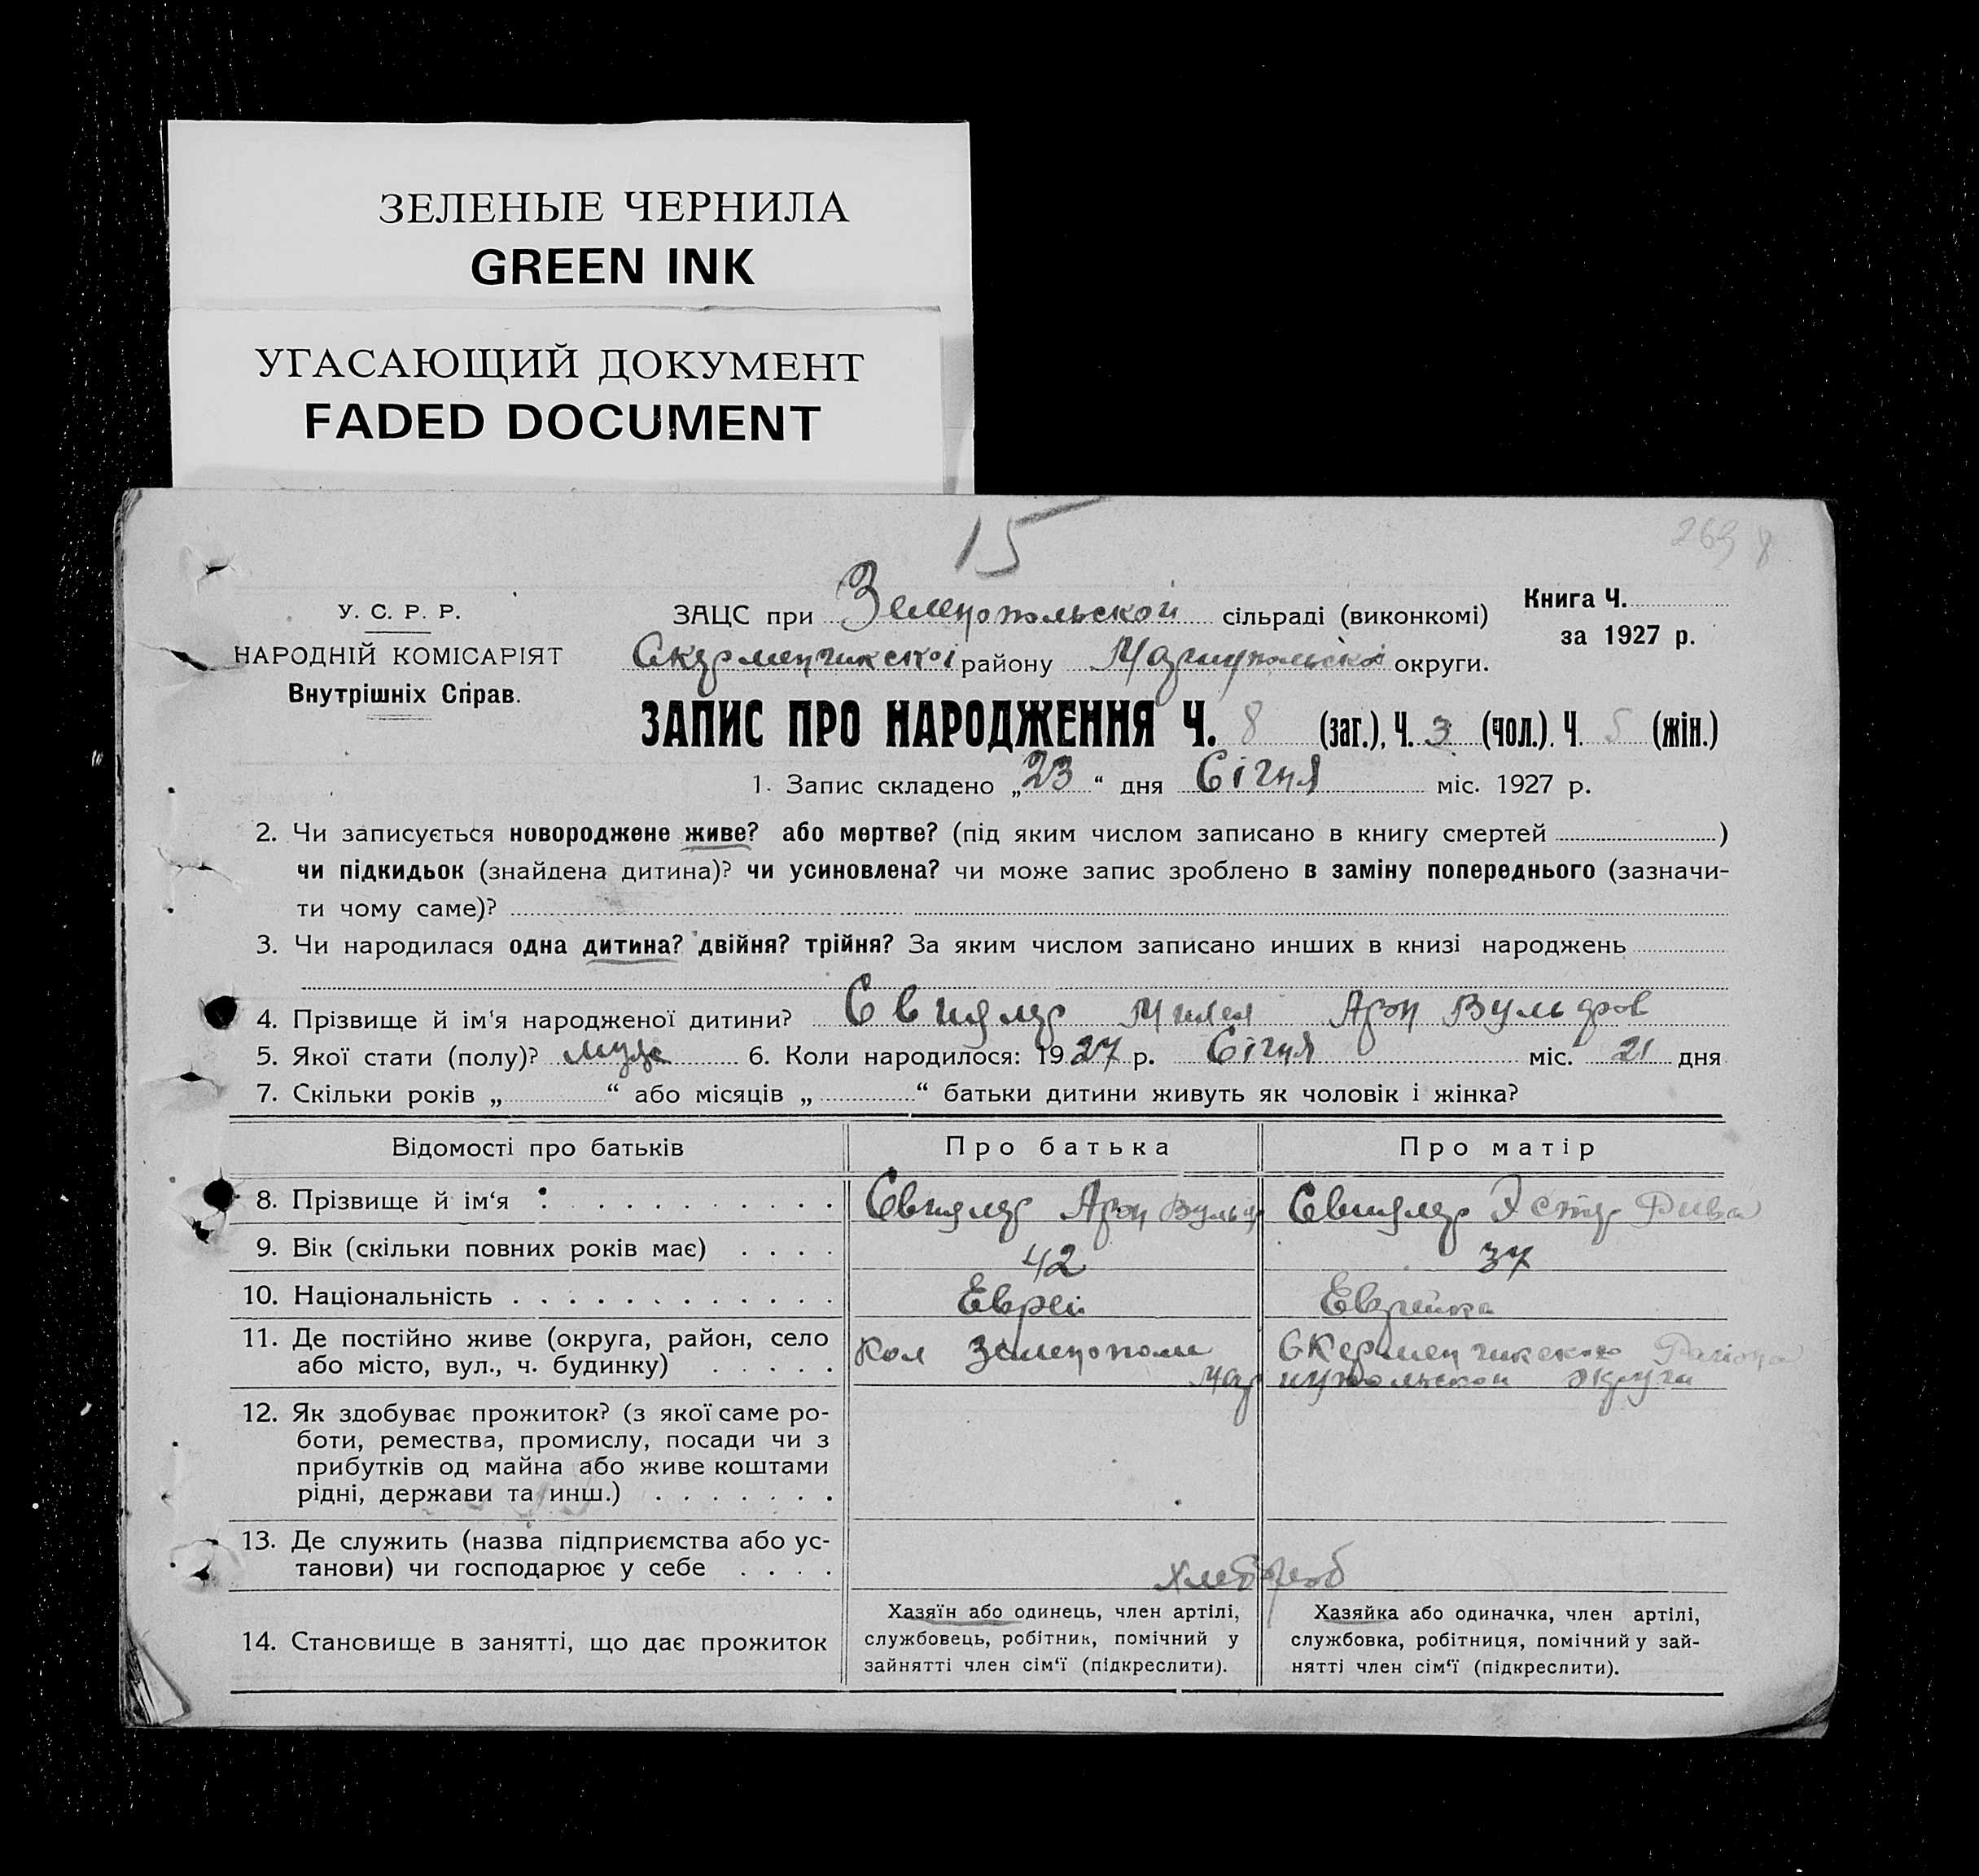 ЗЕЛЕНЫЕ ЧЕРНИЛА
GREEN INK
УГАСАЮЩИЙ ДОКУМЕНТ
FADED DOCUMENT
15
269 8
У. С. Р. Р.
НАРОДНІЙ КОМІСАРІЯТ
Внутрішніх Справ.
ЗАЦС при Зеленопольской сільраді (виконкомі)
Книга Ч.
за 1927 р.
району Мариупольской округи.
ЗАПИС ПРО НАРОДЖЕННЯ Ч. 8 (заг.), Ч. 3 (чол.). Ч. 5 (жін.)
1. Запис складено „23“ дня Січня міс. 1927 р.
2. Чи записується новороджене живе? або мертве? (під яким числом записано в книгу смертей )
чи підкидьок (знайдена дитина)? чи усиновлена? чи може запис зроблено в заміну попереднього (зазначи-
ти чому саме)?
3. Чи народилася одна дитина? двійня? трійня? За яким числом записано инших в книзі народжень
4. Прізвище й ім'я народженої дитини? Арон Вульфов
5. Якої стати (полу)? муж 6. Коли народилося: 1927 р. Січня міс. 21 дня
7. Скільки років „ “ або місяців „ “ батьки дитини живуть як чоловік і жінка?
Відомості про батьків
Про батька
Про матір
8. Прізвище й ім‘я Арон Вульф Эстер Рива
9. Вік (скільки повних років має) 42 37
10. Національність Еврей Еврейка
11. Де постійно живе (округа, район, село
або місто, вул., ч. будинку)
Кол Зеленополе
Мариупольской Округи
12. Як здобуває прожиток? (з якої саме ро-
боти, ремества, промислу, посади чи з
прибутків од майна або живе коштами
рідні, держави та инш.)
13. Де служить (назва підприємства або ус-
танови) чи господарює у себе
хлебороб
14. Становище в занятті, що дає прожиток
Хазяїн або одинець, член артілі,
службовець, робітник, помічний у
зайнятті член сім‘ї (підкреслити).
Хазяйка або одиначка, член артілі,
службовка, робітниця, помічний у зай-
нятті член сім‘ї (підкреслити).